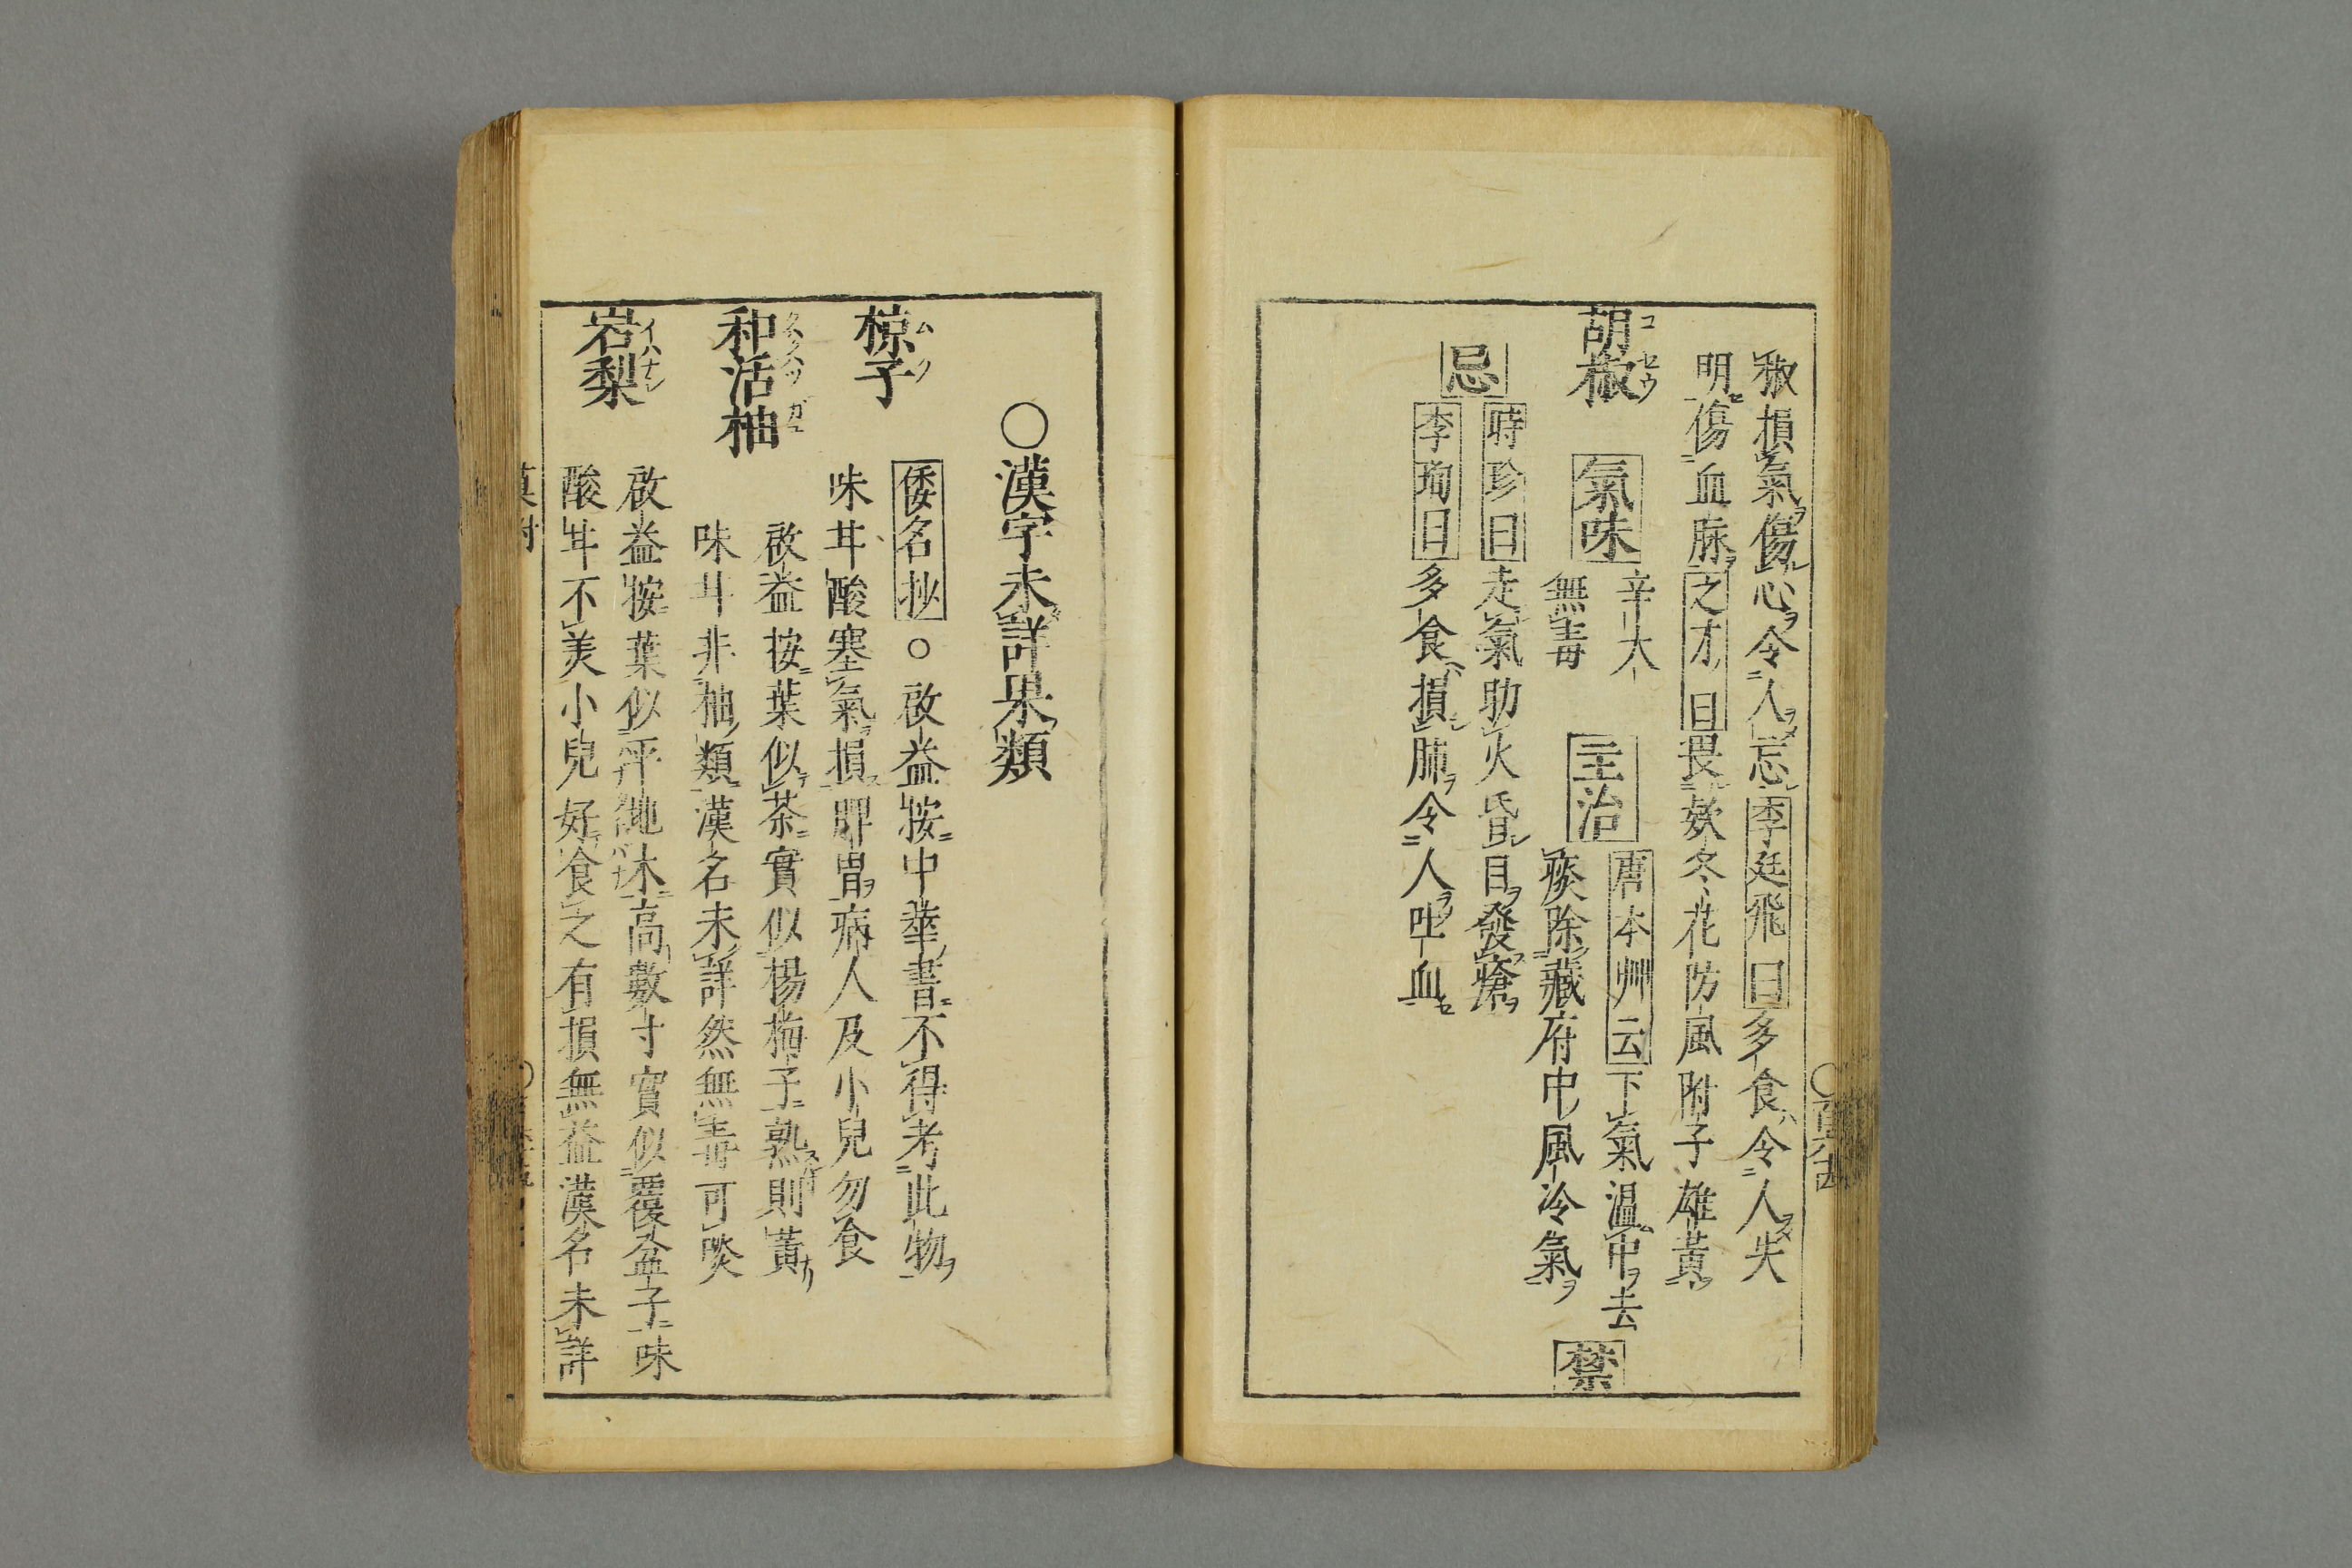 椒損氣傷心令人忘李廷飛曰多食令人失
明傷血脉之才曰畏欵冬花防風附子雄黃
胡椒 氣味 辛大
無毒 主治 唐本艸云下氣溫中去
痰除藏府中風冷氣 禁
忌 時珍曰走氣助火昏目發瘡
李珣曰多食損肺令人吐血
○漢字未詳果類
椋子 倭名抄○啟益按中華書不得考此物
味甘酸塞氣損脾胃病人及小兒勿食
和活柚 啟益按葉似茶實似楊梅子熟則黃
味甘非柚類漢名未詳然無毒可啖
岩梨 啟益按葉似平地木高數寸實似覆盆子味
酸甘不美小兒好食之有損無益漢名未詳